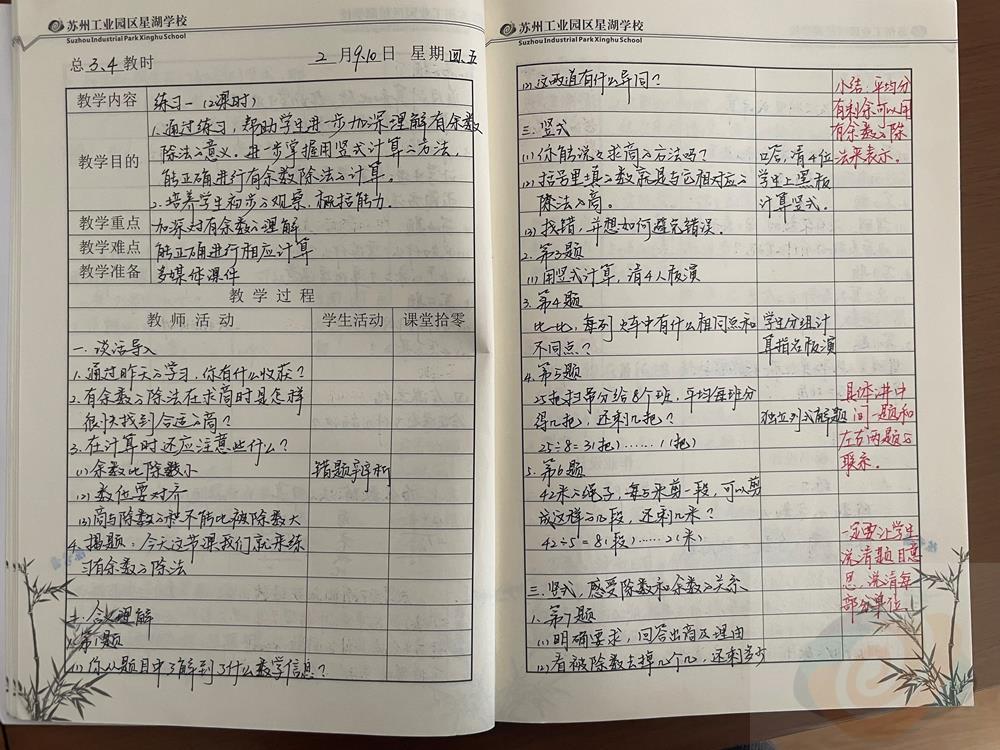 苏州工业园区星湖学校
Suzhou Industrial Park Xinghu School
总 3、4 教时 2 月 9、10 日 星期 四、五
教学内容 练习一（2课时）
教学目的
1. 通过练习，帮助学生进一步加深理解有余数
除法的意义。进一步掌握用竖式计算的方法，
能正确进行有余数除法的计算。
2. 培养学生初步的观察、概括能力。
教学重点 加深对有余数的理解
教学难点 能正确进行相应计算
教学准备 多媒体课件
教 学 过 程
教 师 活 动 学生活动 课堂拾零
一. 谈话导入
1. 通过昨天的学习，你有什么收获？
2. 有余数的除法在求商时是怎样
很快找到合适的商？
3. 在计算时还应注意些什么？
(1) 余数比除数小 错题辨析
(2) 数位要对齐
(3) 商与除数的积不能比被除数大
4. 揭题：今天这节课我们就来练
习有余数的除法
二. 含义理解
1. 第1题
(1) 你从题目中了解到了什么数学信息？
苏州工业园区星湖学校
Suzhou Industrial Park Xinghu School
(2) 这两道有什么异同？
小结：平均分
有剩余可以用
有余数的除
法来表示。
三. 竖式
(1) 你能说说求商的方法吗？ 口答，请4位
(2) 括号里填的数就是与它相对应的 学生上黑板
除法的商。 计算竖式.
(3) 找错，并想如何避免错误。
2. 第3题
(1) 用竖式计算，请4人板演
3. 第4题
比一比，每列火车中有什么相同点和 学生分组计
不同点？ 算指名板演
4. 第5题
25把扫帚分给8个班，平均每班分
得几把，还剩几把？ 独立列式解题
25÷8=3(把)……1(把)
具体讲中
间一题和
左右两题的
联系.
5. 第6题
42米的绳子，每5米剪一段，可以剪
成这样的几段，还剩几米？
42÷5=8(段)……2(米)
一定要让学生
说清题目意
思，说清每
部分单位
三. 竖式，感受除数和余数的关系
1. 第7题
(1) 明确要求，回答出商及理由
(2) 看被除数去掉几个几，还剩多少